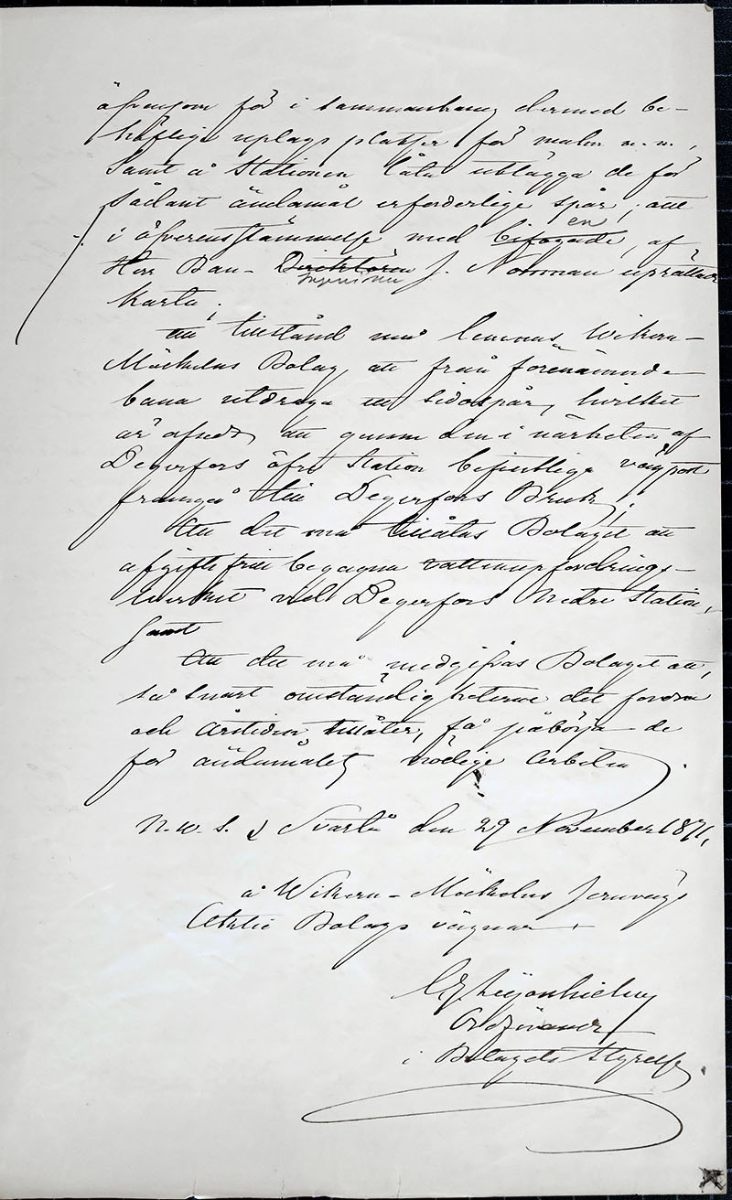 äfvensom för i sammanhang dermed be-
höfliga upplags platser för malm m. m.,
samt å Stationen låta utlägga de för
sådant ändamål erforderliga spår; att
en
i öfverensstämmelse med bifogade, af
Herr Ban- Direktören J. Norrman upprättad
Ingeniören
Karta;
att tillstånd må lemnas Wikern-
Möckelns Bolag att från förenämnde
bana utdraga ett sidospår, hvilket
är afsedt att genom den i närheten af
Degerfors öfre Station befintliga vägport
framgå till Degerfors Bruk;
Att det må tillåtas Bolaget att
afgiftsfritt begagna vattenuppfordrings-
verket vid Degerfors Nedre Station,
samt
Att det må medgifvas Bolaget att,
så snart omständigheterna det fordra
och årstiden tillåter, få påbörja de
för ändamålet nödige arbeten.
Svartå den 29 November 1871,
å Wikern-Möckelns Jernvägs
Aktie Bolags vägnar.
Leijonhielm
Ordförande
i Bolagets Styrelse